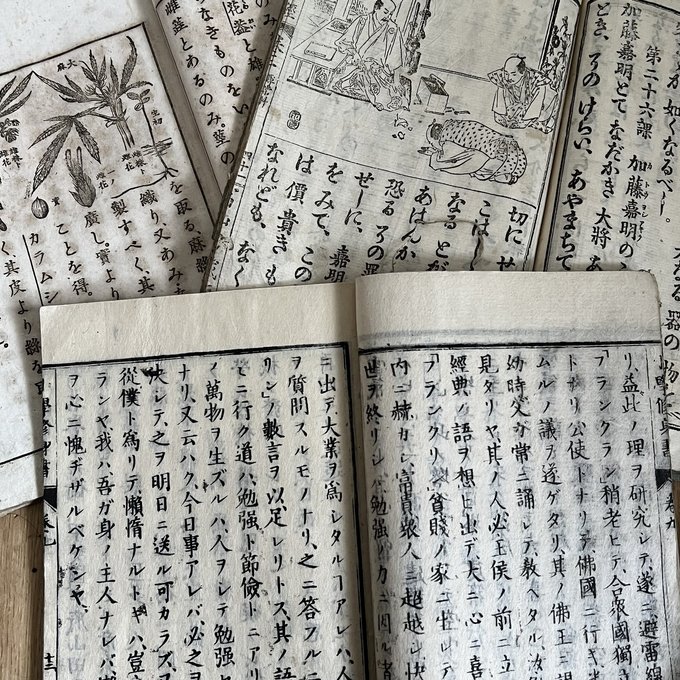 リ益此ノ理ヲ研究シテ、遂ニ避雷線
「フランクラン」稍老ヒテ、合衆國獨
トナリ公使トナリテ佛國ニ行キ
ムルノ議ヲ遂ゲタリ、其ノ佛王ニ
幼時父ガ常ニ誦シテ、教ヘタル、汝
見タリヤ、其ノ人必王侯ノ前ニ立
經典ノ語ヲ想ヒ出デ、大ニ心ニ喜
「フランクリン」貧賤ノ家ニ生レテ
内ニ赫カシ、富貴衆人ニ超越シ、快
世ヲ終リシハ、勉強ノ力ニ因ル者
ニ出デ、大業ヲ爲シタルヿアレハ、人
ヲ質問スルモノナリ、之ニ答フルニ
リン」ノ數言ヲ以、足レリトス、其ノ語
モニ行ク道ハ、勉強ト節儉トニアリ
ノ萬物ヲ生ズルハ、人ヲシテ勉強セ
ナリ、又云ハク、今日事アレバ、必之ヲ
決シテ、之ヲ明日ニ送ル可カラズ、ヌ
從僕ト爲リテ、懶惰ナルトキハ、豈
ランヤ、我ハ吾ガ身ノ主人ナレバ、
ヲ心ニ愧ヂザルベケンヤ、
修身書
卷九
十三
が如くなるべし。
第二十六課 加藤嘉明の
加藤嘉明とて なだかき 大將 あ
とき、その けらい、あやまちて
切に せ
こはし
なる とが
あはんか
恐る その罪
せーに、
嘉明
をみて、この
は 價 貴き も
なれども、なく
のみ
花蕋と
なきものをい
雌蕋とあるのみ
大麻
雄花
雌花
實
を取る、麻
織り又あみ
製すべく、其
廣し。實より
ことを得。
カラムシ
く、其皮より